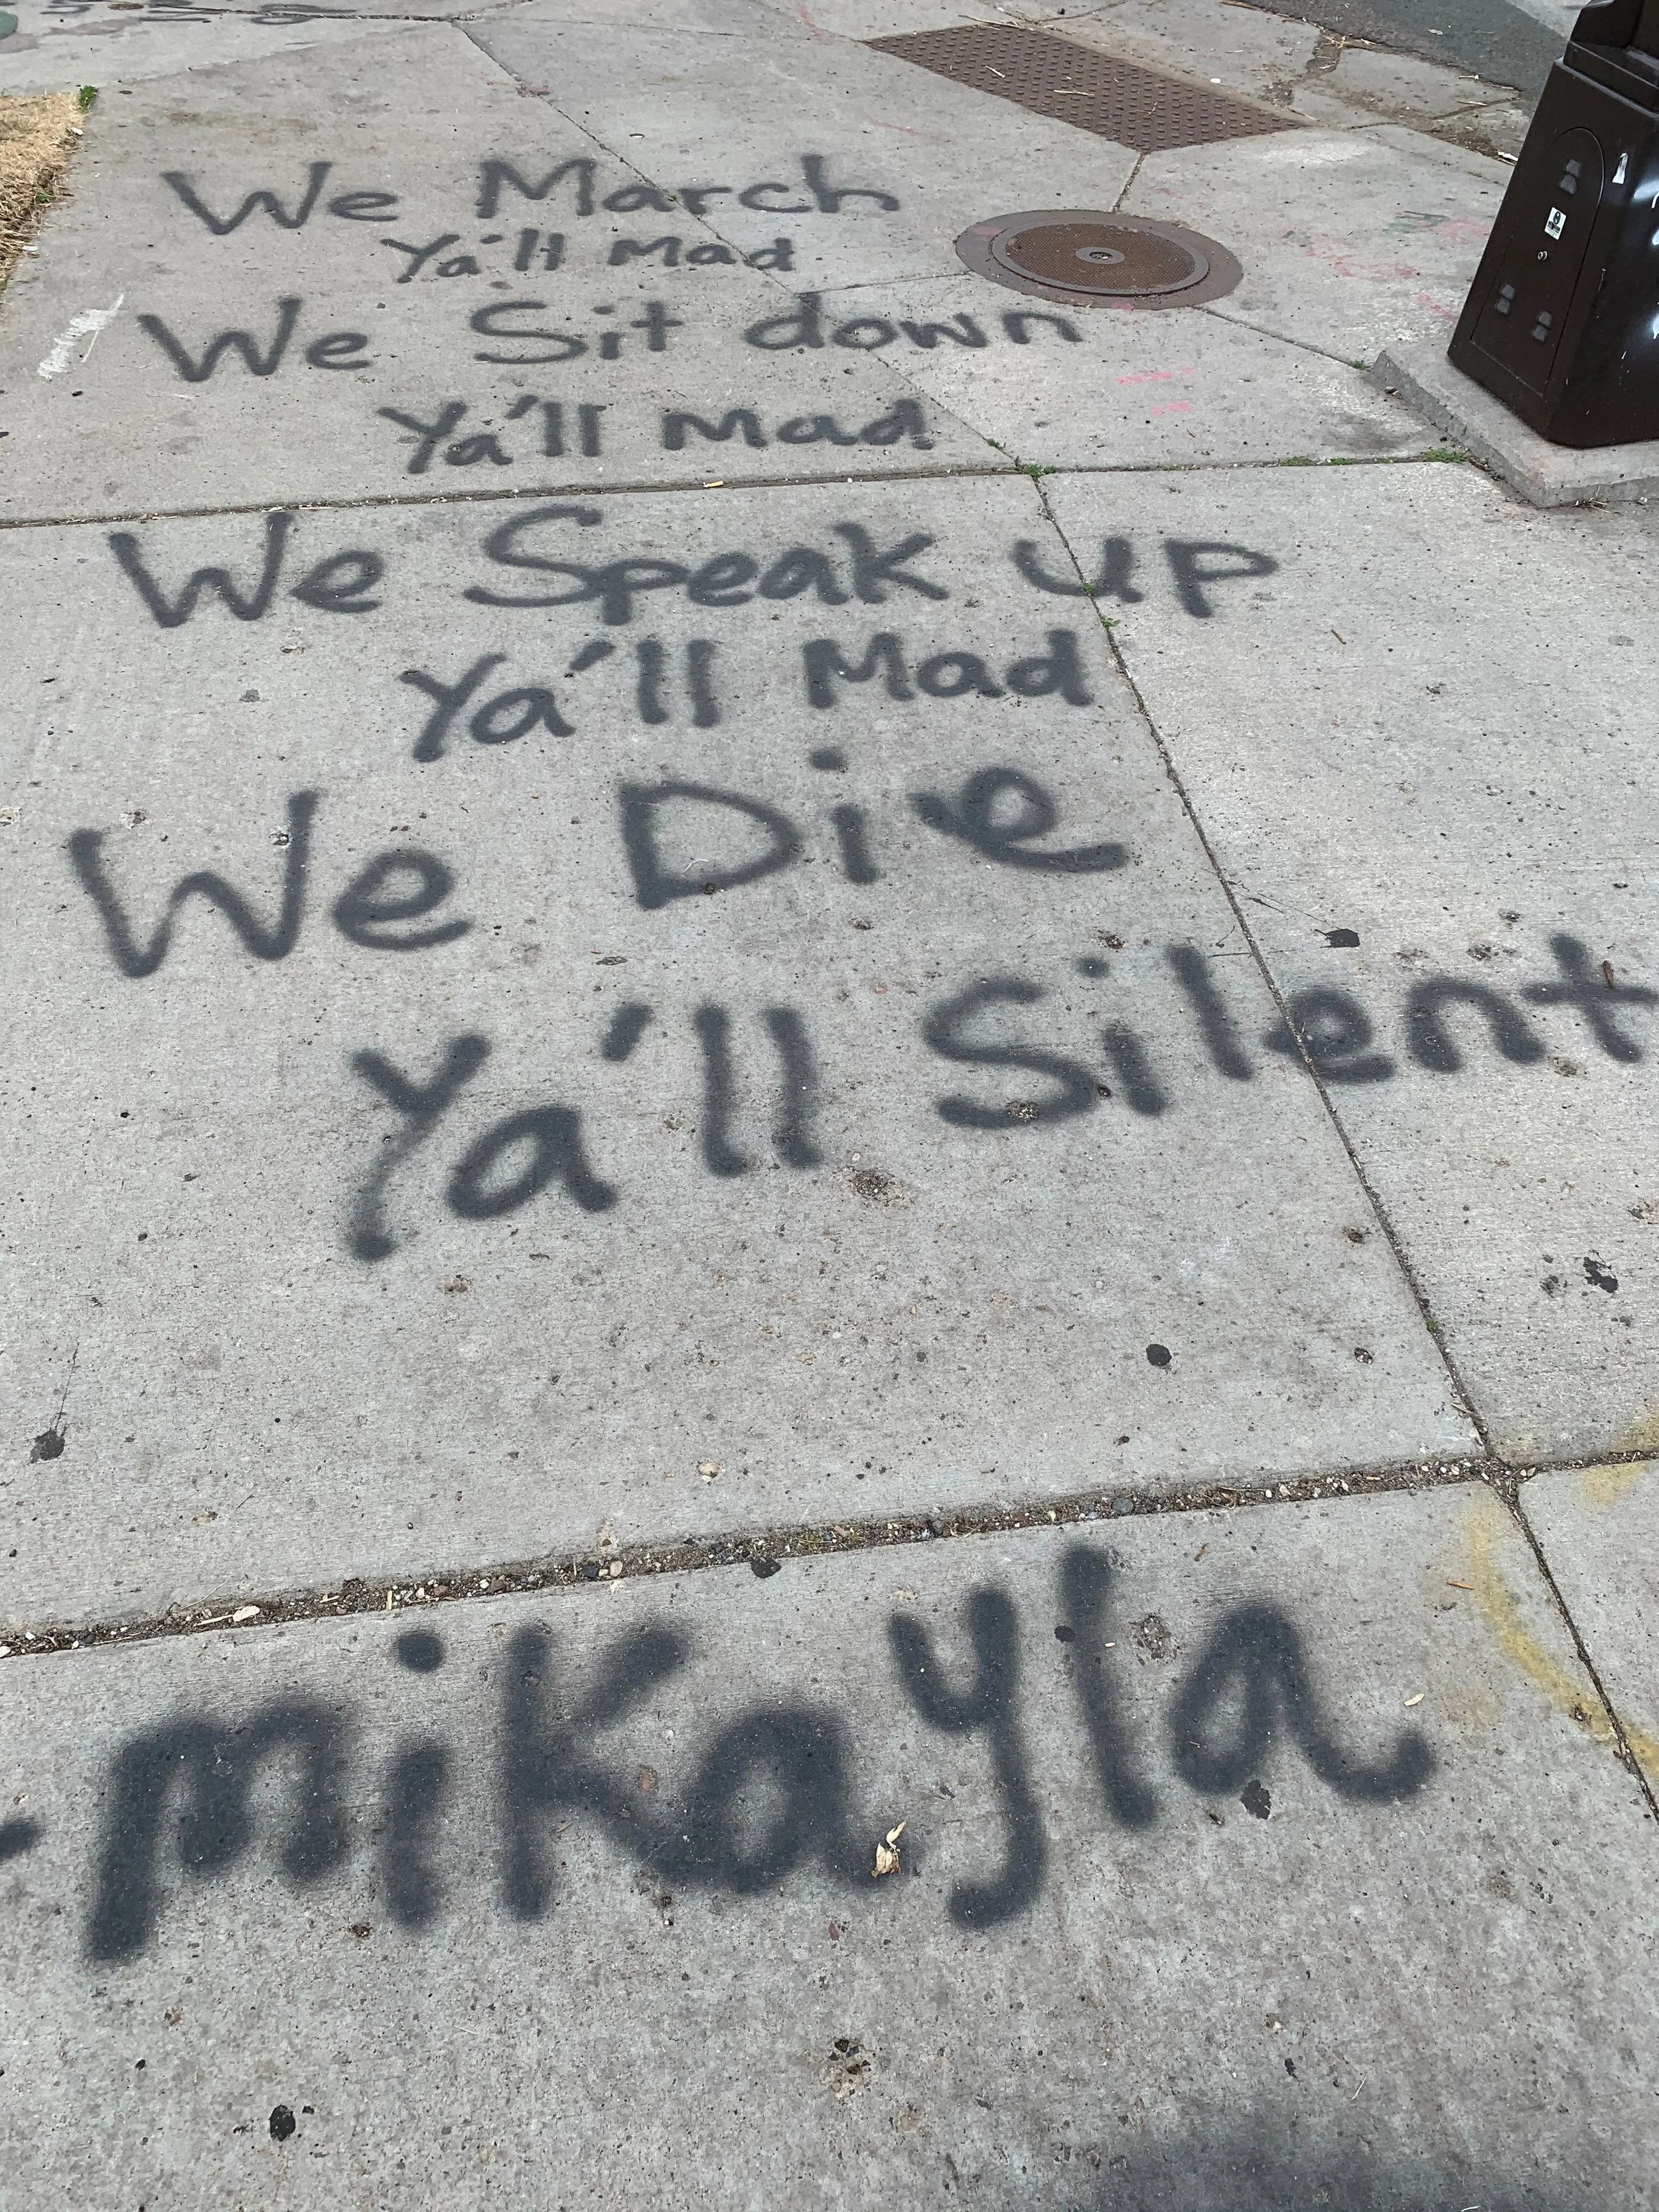 We March
Ya'll Mad
We Sit down
Ya'll Mad
We Speak up
Ya'll Mad
We Die
Ya'll Silent
-mikayla